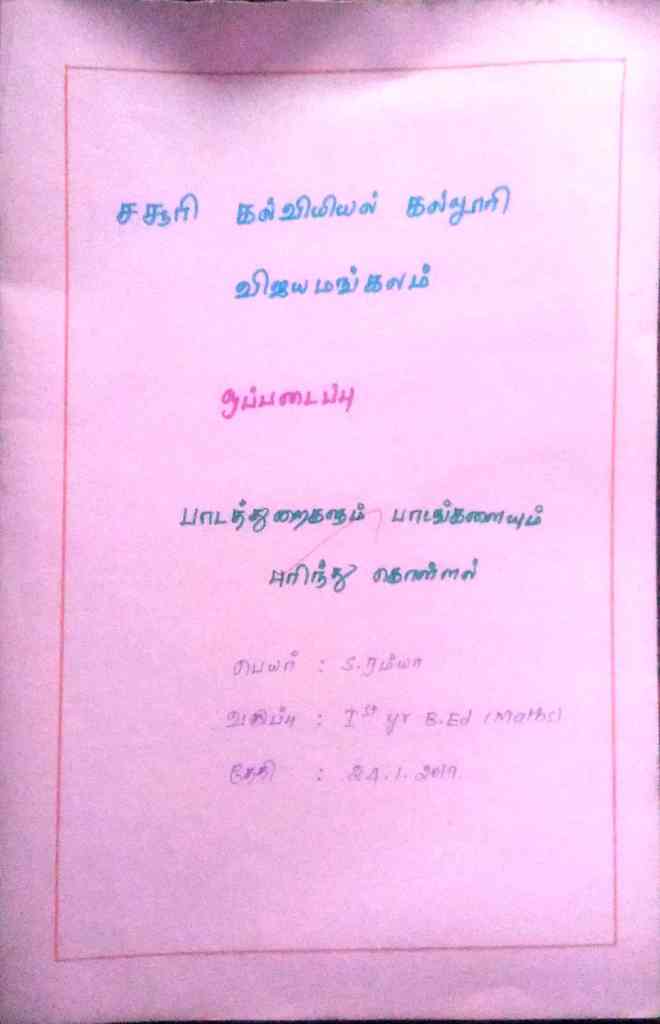 சசூரி கல்வியியல் கல்லூரி
விஜயமங்கலம்
ஒப்படைப்பு
பாடத்துறைகளும் பாடங்களையும்
புரிந்து கொள்ளல்
பெயர் : S. ரம்யா
வகுப்பு : Ist yr B.Ed (Maths)
தேதி : 24.1.2017